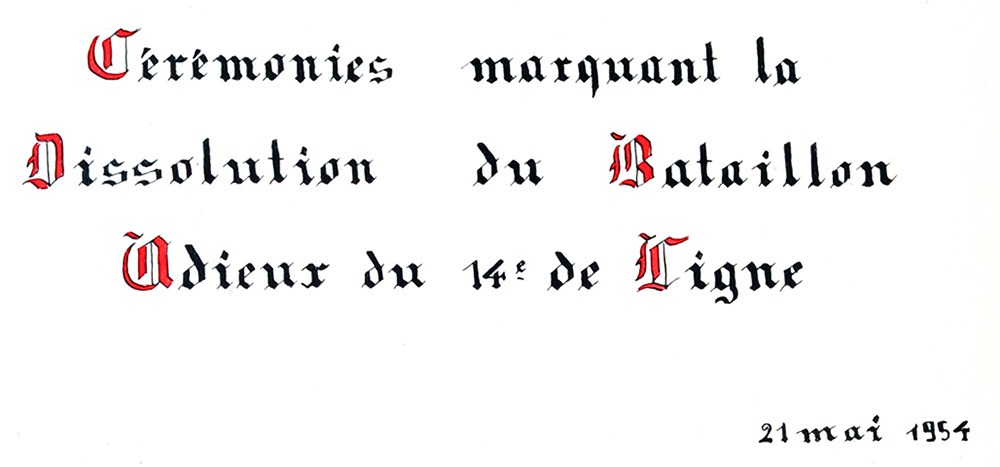 Cérémonies marquant la
Dissolution du Bataillon
Adieux du 14e de Ligne
21 mai 1954